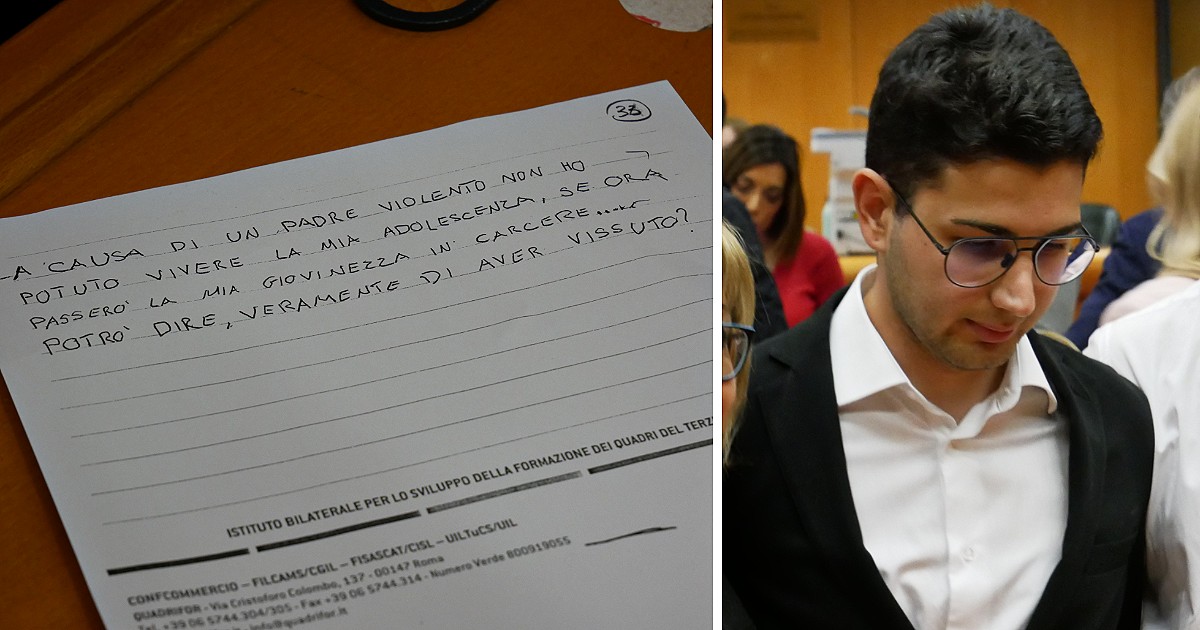 38
- A CAUSA DI UN PADRE VIOLENTO NON HO
POTUTO VIVERE LA MIA ADOLESCENZA, SE ORA
PASSERO' LA MIA GIOVINEZZA IN CARCERE.....
POTRO' DIRE, VERAMENTE DI AVER VISSUTO?
ISTITUTO BILATERALE PER LO SVILUPPO DELLA FORMAZIONE DEI QUADRI DEL TERZ
CONFCOMMERCIO – FILCAMS/CGIL – FISASCAT/CISL – UILTuCS/UIL
QUADRIFOR - Via Cristoforo Colombo, 137 - 00147 Roma
Tel. +39 06 5744.304/305 - Fax +39 06 5744.314 - Numero Verde 800919055
info@quadrifor.it